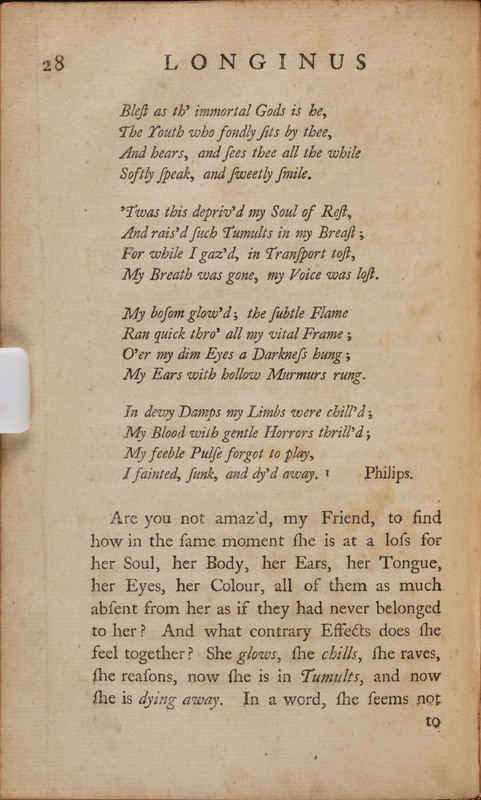 28 LONGINUS
Bleſt as th' immortal Gods is he,
The Youth who fondly ſits by thee,
And hears, and ſees thee all the while
Softly ſpeak, and ſweetly ſmile.
'Twas this depriv'd my Soul of Reſt,
And rais'd ſuch Tumults in my Breaſt;
For while I gaz'd, in Tranſport toſt,
My Breath was gone, my Voice was loſt.
My boſom glow'd; the ſubtle Flame
Ran quick thro' all my vital Frame;
O'er my dim Eyes a Darkneſs hung;
My Ears with hollow Murmurs rung.
In dewy Damps my Limbs were chill'd;
My Blood with gentle Horrors thrill'd;
My feeble Pulſe forgot to play,
I fainted, ſunk, and dy'd away. 1 Philips.
Are you not amaz'd, my Friend, to find
how in the ſame moment ſhe is at a loſs for
her Soul, her Body, her Ears, her Tongue,
her Eyes, her Colour, all of them as much
abſent from her as if they had never belonged
to her? And what contrary Effects does ſhe
feel together? She glows, ſhe chills, ſhe raves,
ſhe reaſons, now ſhe is in Tumults, and now
ſhe is dying away. In a word, ſhe ſeems not
to